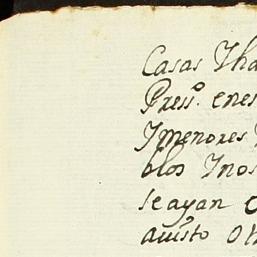 Casas Tha
Press.º enes
Imenores
blos Inos
se ayan
auisto Ot